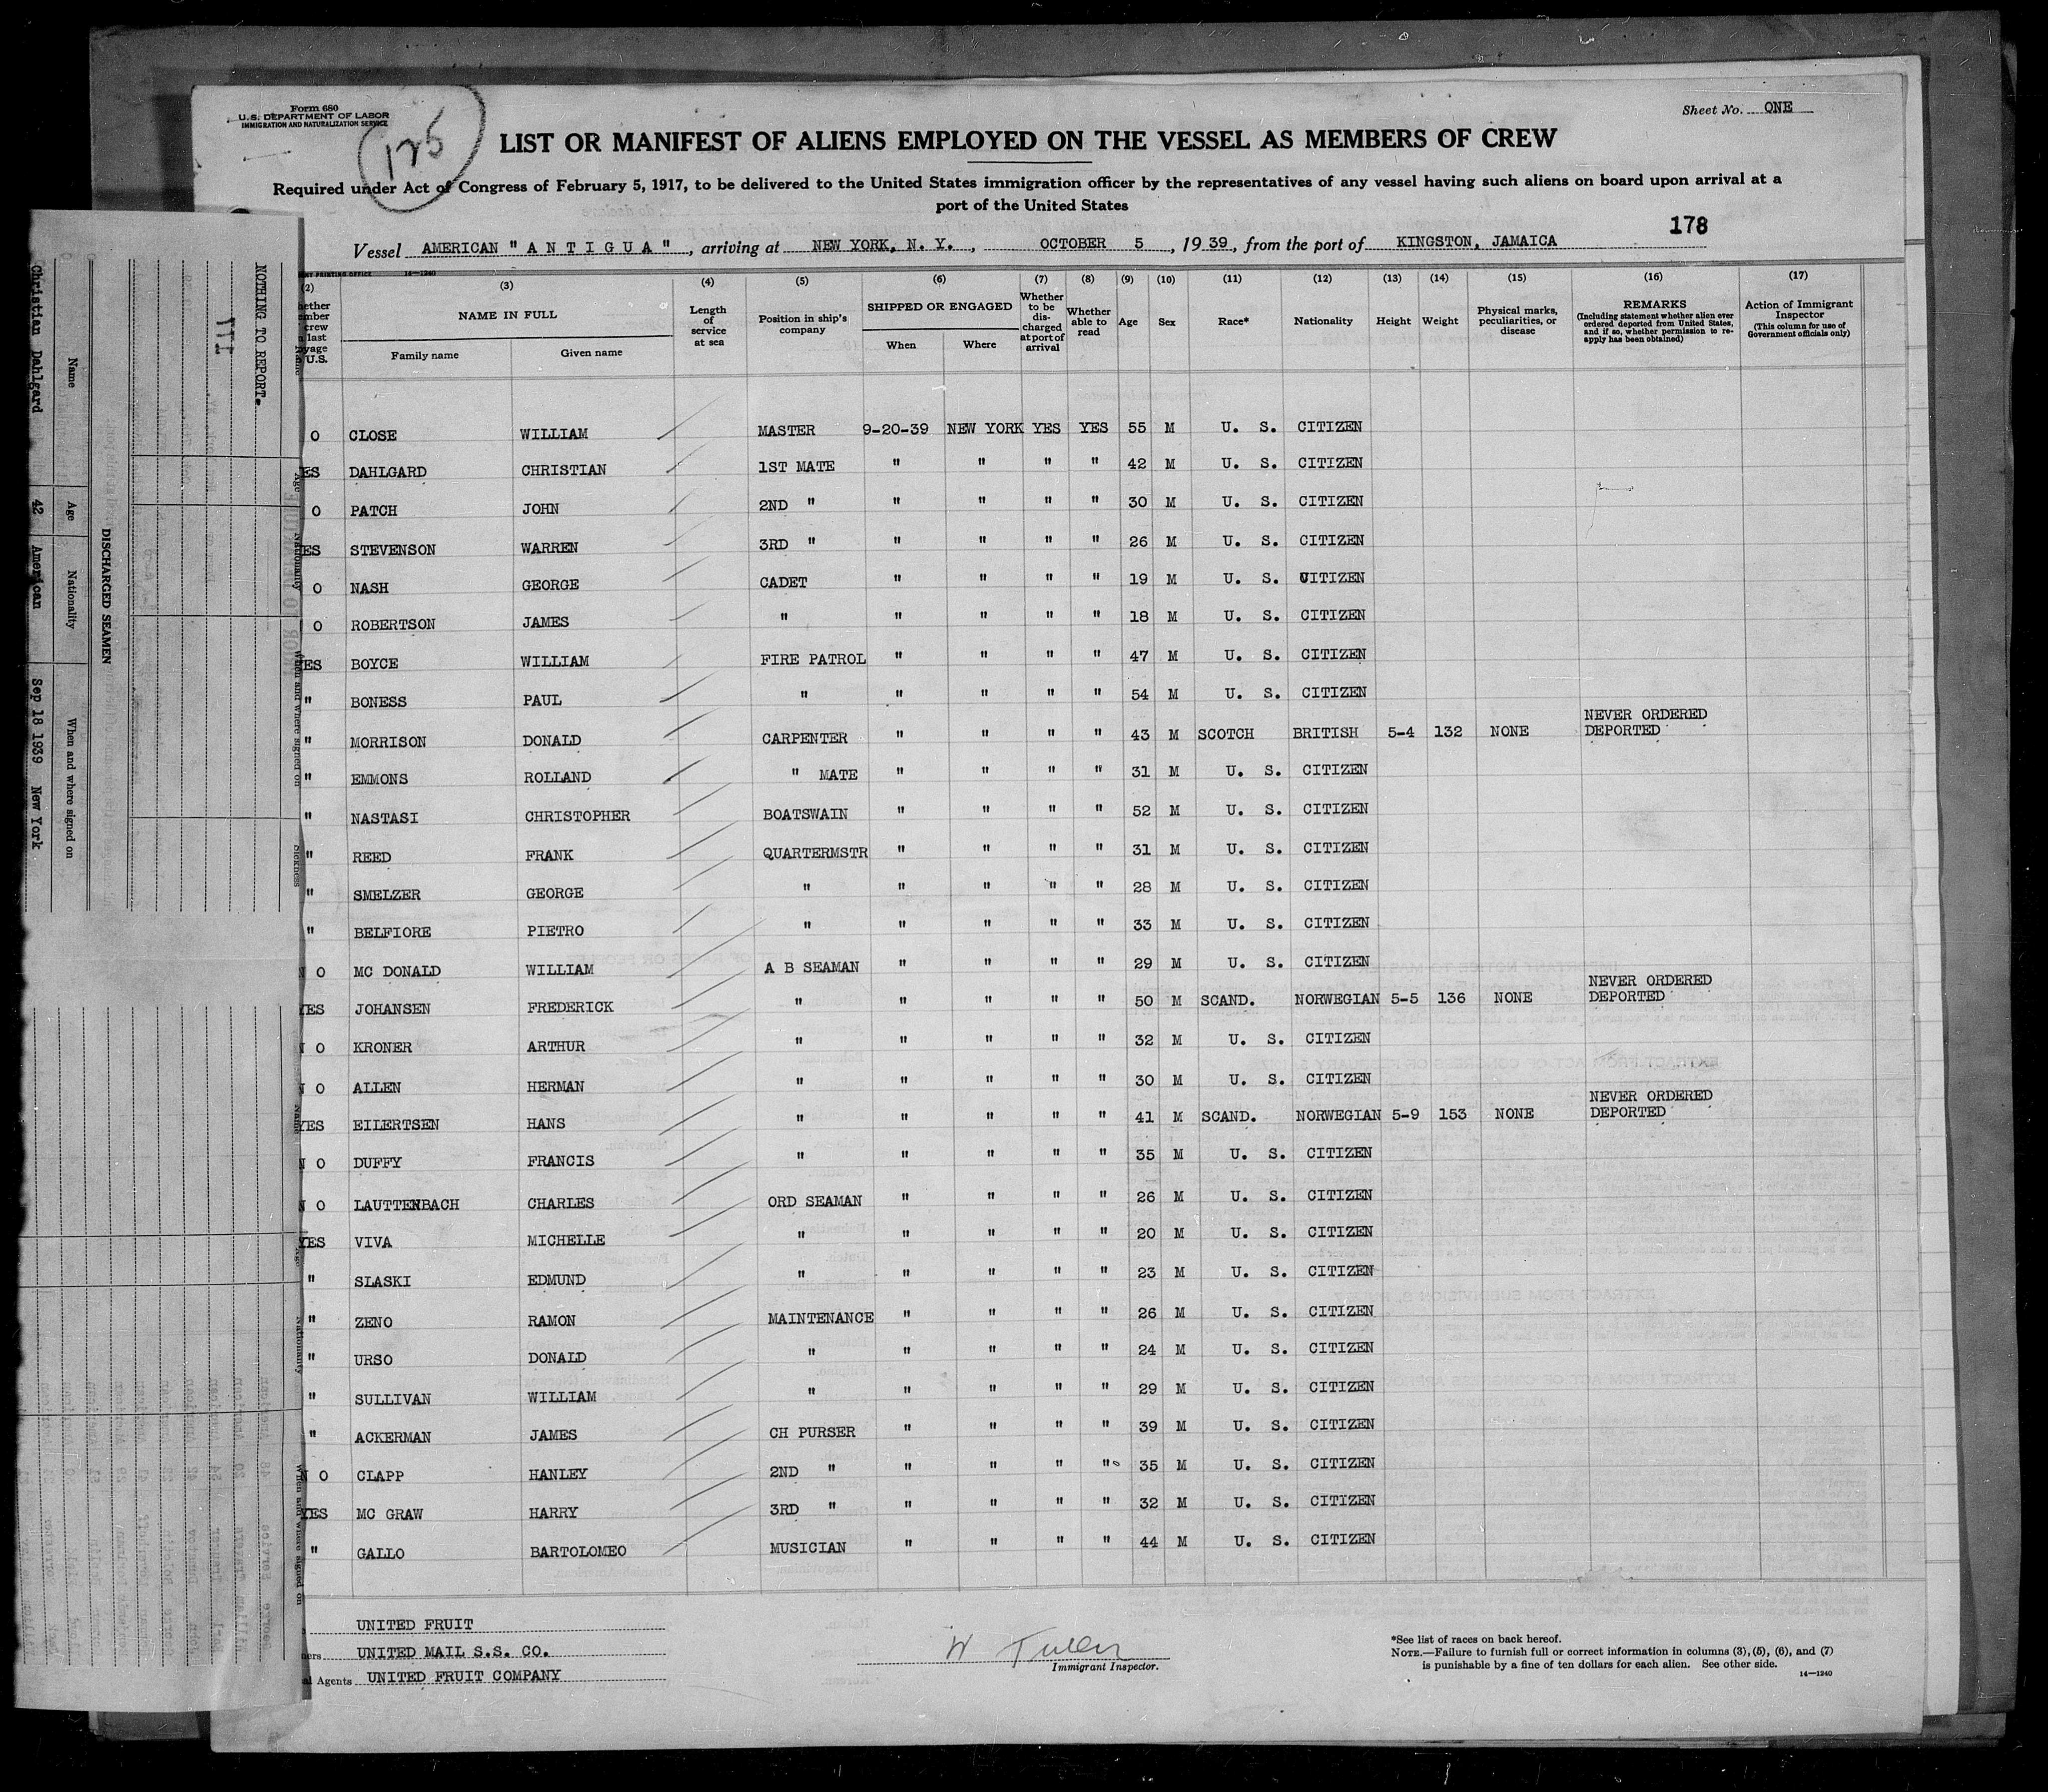 Form 680
U. S. DEPARTMENT OF LABOR
IMMIGRATION AND NATURALIZATION SERVICE
125
Sheet No. ONE
LIST OR MANIFEST OF ALIENS EMPLOYED ON THE VESSEL AS MEMBERS OF CREW
Required under Act of Congress of February 5, 1917, to be delivered to the United States immigration officer by the representatives of any vessel having such aliens on board upon arrival at a
port of the United States
178
Vessel AMERICAN "A N T I G U A", arriving at NEW YORK, N. Y., OCTOBER 5, 1939, from the port of KINGSTON, JAMAICA
14—1240
(2) (3) (4) (5) (6) (7) (8) (9) (10) (11) (12) (13) (14) (15) (16) (17)
NAME IN FULL
Family name Given name
Length of service at sea
Position in ship's company
SHIPPED OR ENGAGED
When Where
Whether to be discharged at port of arrival
Whether able to read
Age
Sex
Race*
Nationality
Height
Weight
Physical marks, peculiarities, or disease
REMARKS
(Including statement whether alien ever ordered deported from United States, and if so, whether permission to re-apply has been obtained)
Action of Immigrant Inspector
(This column for use of Government officials only)
O CLOSE WILLIAM MASTER 9-20-39 NEW YORK YES YES 55 M U. S. CITIZEN
ES DAHLGARD CHRISTIAN 1ST MATE " " " " 42 M U. S. CITIZEN
O PATCH JOHN 2ND " " " " " 30 M U. S. CITIZEN
ES STEVENSON WARREN 3RD " " " " " 26 M U. S. CITIZEN
O NASH GEORGE CADET " " " " 19 M U. S. CITIZEN
O ROBERTSON JAMES " " " " " 18 M U. S. CITIZEN
ES BOYCE WILLIAM FIRE PATROL " " " " 47 M U. S. CITIZEN
" BONESS PAUL " " " " " 54 M U. S. CITIZEN
" MORRISON DONALD CARPENTER " " " " 43 M SCOTCH BRITISH 5-4 132 NONE NEVER ORDERED DEPORTED
" EMMONS ROLLAND " MATE " " " " 31 M U. S. CITIZEN
" NASTASI CHRISTOPHER BOATSWAIN " " " " 52 M U. S. CITIZEN
" REED FRANK QUARTERMSTR " " " " 31 M U. S. CITIZEN
" SMELZER GEORGE " " " " " 28 M U. S. CITIZEN
" BELFIORE PIETRO " " " " " 33 M U. S. CITIZEN
N O MC DONALD WILLIAM A B SEAMAN " " " " 29 M U. S. CITIZEN
YES JOHANSEN FREDERICK " " " " " 50 M SCAND. NORWEGIAN 5-5 136 NONE NEVER ORDERED DEPORTED
N O KRONER ARTHUR " " " " " 32 M U. S. CITIZEN
N O ALLEN HERMAN " " " " " 30 M U. S. CITIZEN
YES EILERTSEN HANS " " " " " 41 M SCAND. NORWEGIAN 5-9 153 NONE NEVER ORDERED DEPORTED
N O DUFFY FRANCIS " " " " " 35 M U. S. CITIZEN
N O LAUTTENBACH CHARLES ORD SEAMAN " " " " 26 M U. S. CITIZEN
YES VIVA MICHELLE " " " " " 20 M U. S. CITIZEN
" SLASKI EDMUND " " " " " 23 M U. S. CITIZEN
" ZENO RAMON MAINTENANCE " " " " 26 M U. S. CITIZEN
" URSO DONALD " " " " " 24 M U. S. CITIZEN
" SULLIVAN WILLIAM " " " " " 29 M U. S. CITIZEN
" ACKERMAN JAMES CH PURSER " " " " 39 M U. S. CITIZEN
N O CLAPP HANLEY 2ND " " " " " 35 M U. S. CITIZEN
YES MC GRAW HARRY 3RD " " " " " 32 M U. S. CITIZEN
" GALLO BARTOLOMEO MUSICIAN " " " " 44 M U. S. CITIZEN
UNITED FRUIT
UNITED MAIL S.S. CO.
Agents UNITED FRUIT COMPANY
W Tuller
Immigrant Inspector.
*See list of races on back hereof.
NOTE.—Failure to furnish full or correct information in columns (3), (5), (6), and (7)
is punishable by a fine of ten dollars for each alien. See other side.
14—1240
NOTHING TO REPORT.
III
DISCHARGED SEAMEN
Name Age Nationality When and where signed on
Christian Dahlgard 42 American Sep 18 1939 New York
Sickness
Name
Age
Nationality
When and where signed on